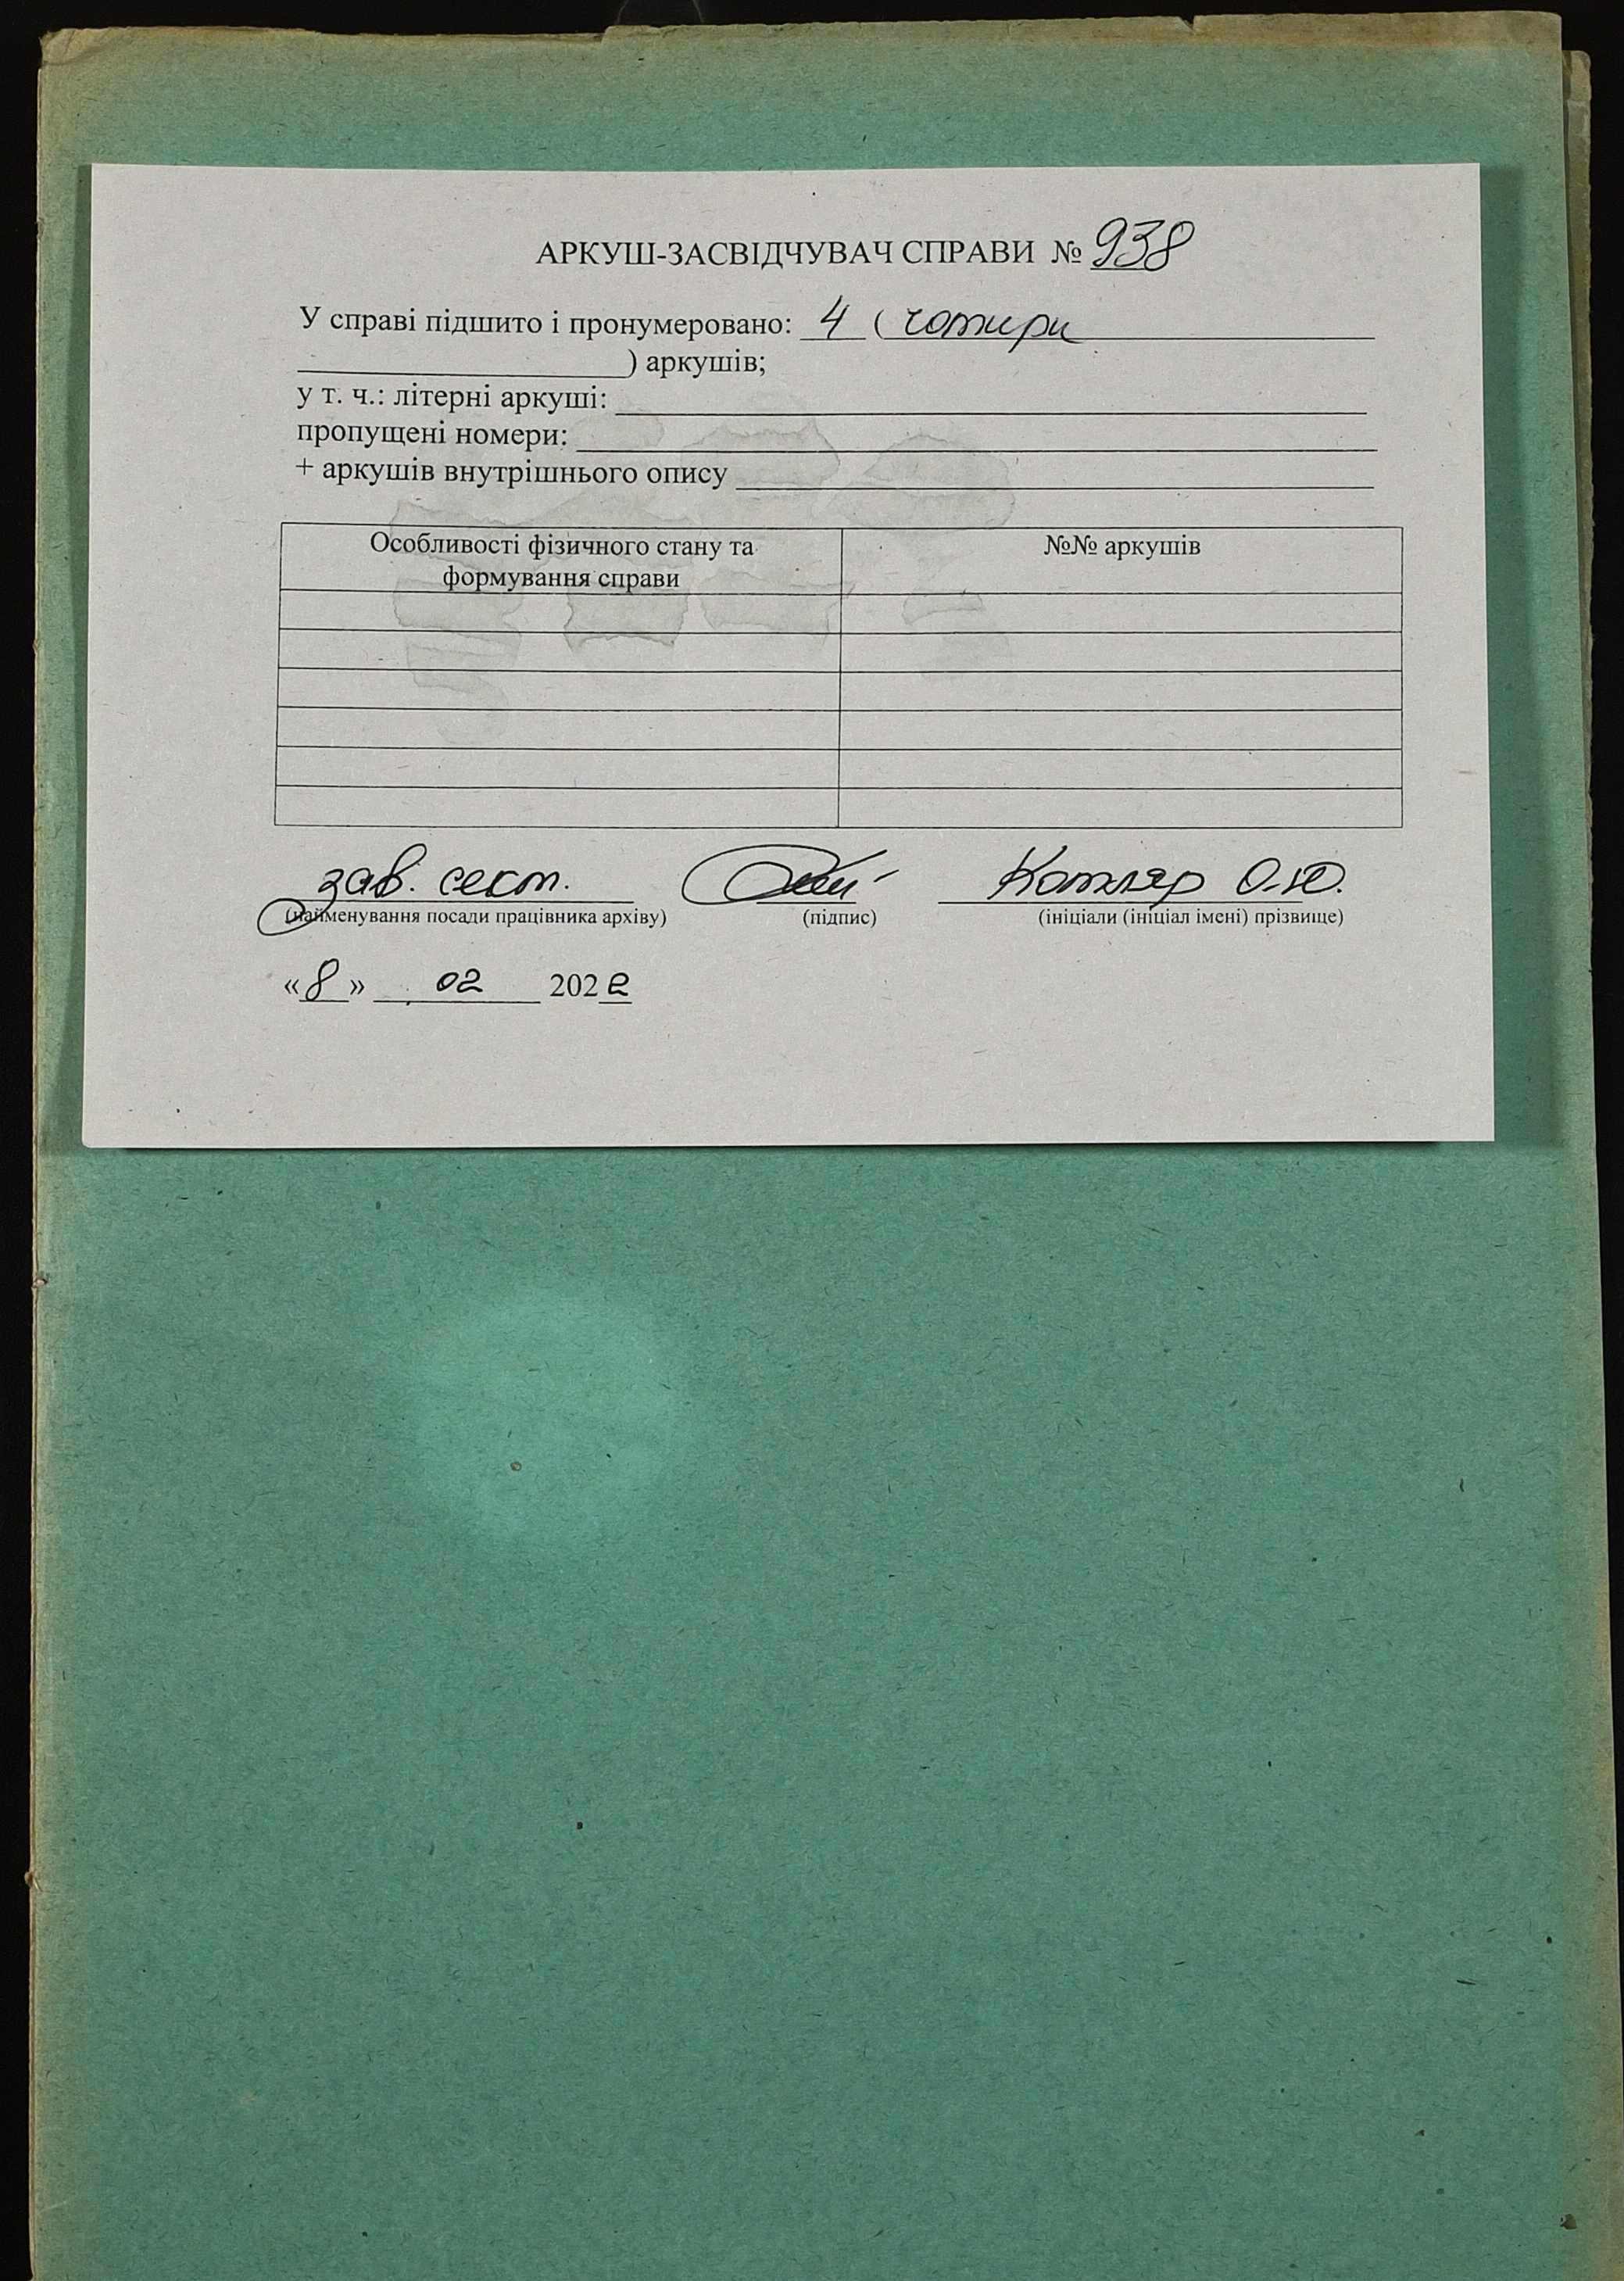 АРКУШ-ЗАСВІДЧУВАЧ СПРАВИ № 938
У справі підшито і пронумеровано: 4 ( чотири
) аркушів;
у т. ч.: літерні аркуші:
пропущені номери:
+ аркушів внутрішнього опису
Особливості фізичного стану та №№ аркушів
формування справи
зав. сект. Котляр О.Ю.
(найменування посади працівника архіву) (підпис) (ініціали (ініціал імені) прізвище)
«8» 02 2022